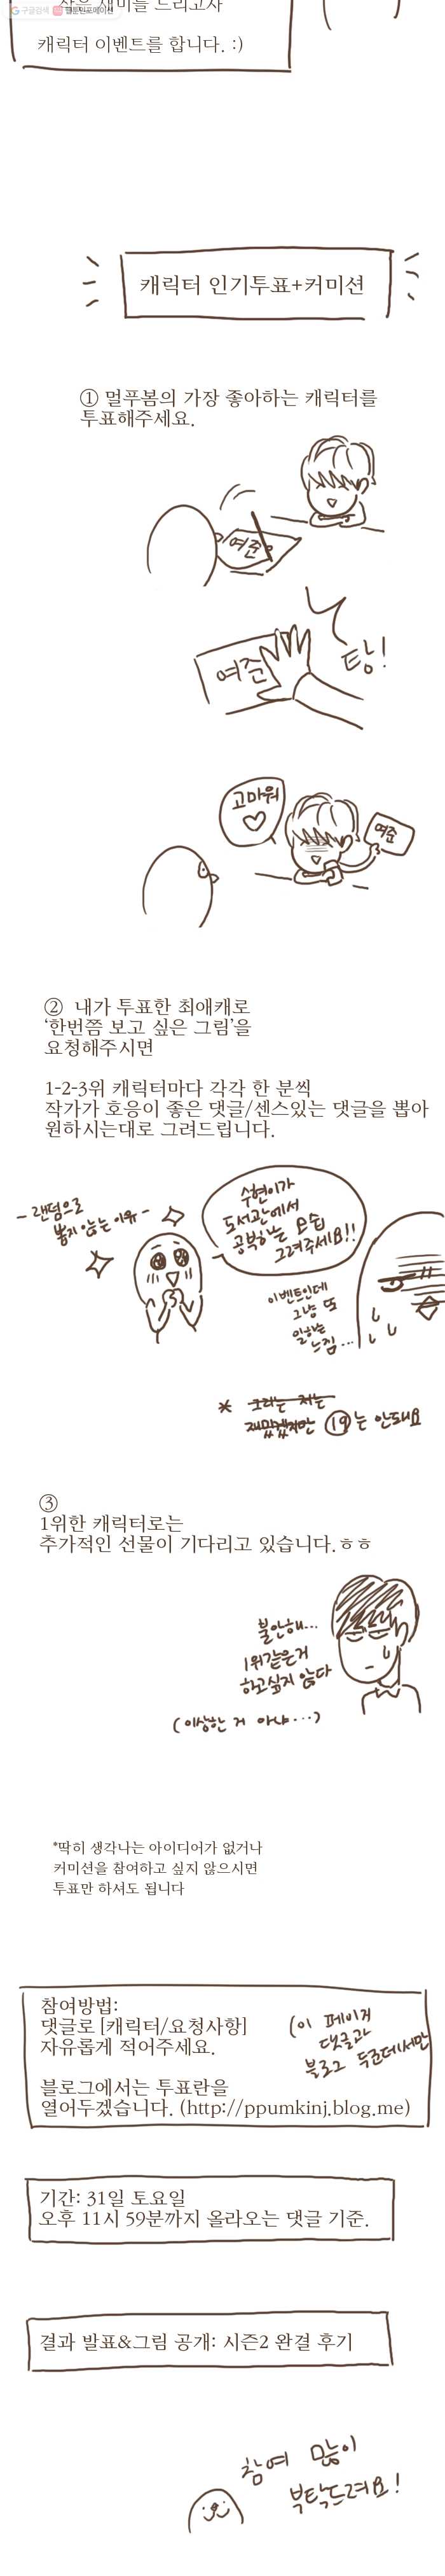 구글검색 웹툰인포메이션
캐릭터 이벤트를 합니다. :)
캐릭터 인기투표+커미션
① 멀푸봄의 가장 좋아하는 캐릭터를
투표해주세요.
여준
여준
탕!
고마워
여준
② 내가 투표한 최애캐로
‘한번쯤 보고 싶은 그림’을
요청해주시면
1-2-3위 캐릭터마다 각각 한 분씩
작가가 호응이 좋은 댓글/센스있는 댓글을 뽑아
원하시는대로 그려드립니다.
- 랜덤으로
뽑지 않는 이유 -
수현이가
도서관에서
공부하는 모습
그려주세요!!
이벤트인데
그냥 또
일하는
느낌...
* 그리는 저는
재밌겠지만 ⑲는 안돼요
③
1위한 캐릭터로는
추가적인 선물이 기다리고 있습니다.ㅎㅎ
불안해...
1위같은거
하고싶지 않다
(이상한 거 아냐...)
*딱히 생각나는 아이디어가 없거나
커미션을 참여하고 싶지 않으시면
투표만 하셔도 됩니다
참여방법:
댓글로 [캐릭터/요청사항]
자유롭게 적어주세요.
(이 페이지
댓글과
블로그 두군데에서만
블로그에서는 투표란을
열어두겠습니다. (http://ppumkinj.blog.me)
기간: 31일 토요일
오후 11시 59분까지 올라오는 댓글 기준.
결과 발표&그림 공개: 시즌2 완결 후기
참여 많이
부탁드려요!